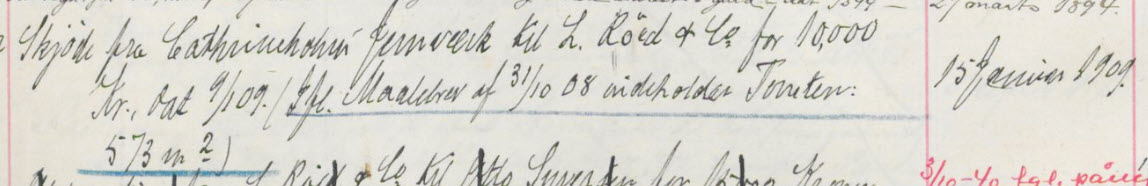 27 marts 1894.
Skjøde fra Cathrineholms Jernværk til L. Röed & Co for 10,000
Kr., dat 9/1 09. (Ifl. Maalebrev af 31/10 08 indeholder Tomten:
573 m²)
15 Januar 1909.
Röed & Co til Otto
Kroner
3/10-40